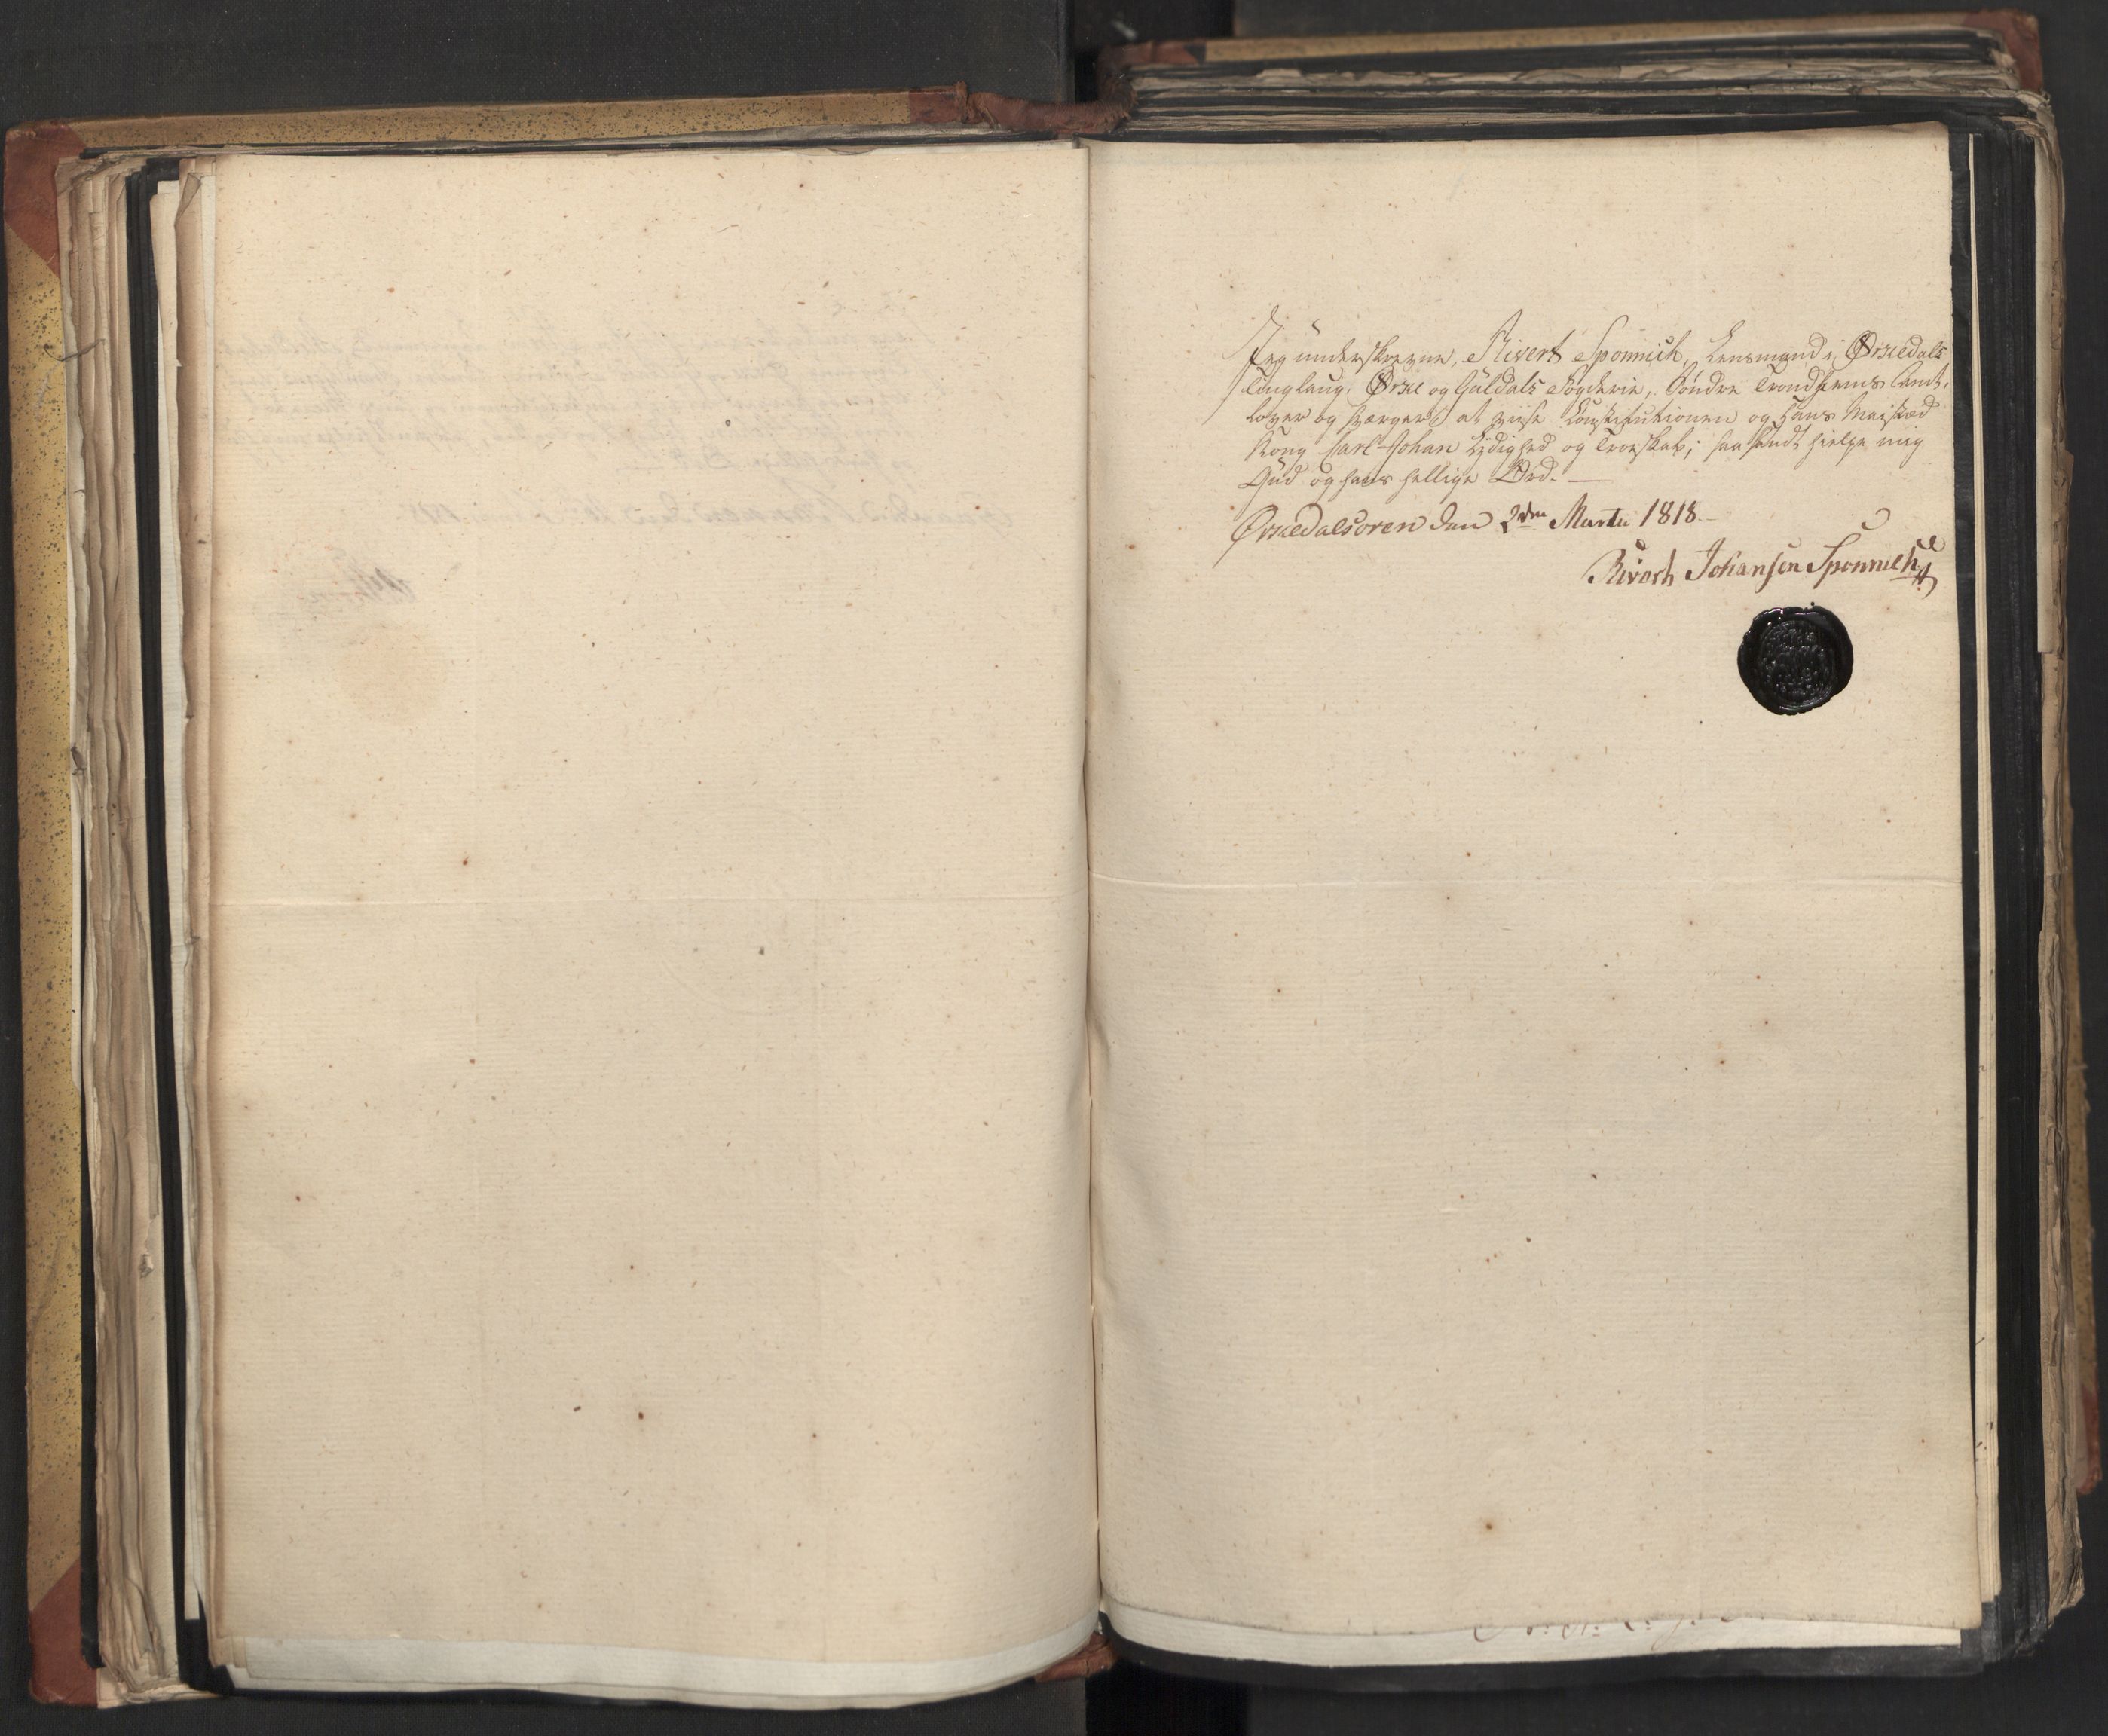 Jeg underskrevne, Sivert Sponnich, Lensmand i Ørkedals
Tinglaug, Ørke og Guldals Fogderie, Søndre Trondhiems Amt,
lover og sværger at viise Constitutionen og Hans Majestæd
Kong Carl Johan Lydighed og Troeskab; saa sandt hielpe mig
Gud og hans hellige Ord.
Ørkedalsøren den 2den Martii 1818.
Sivert Johansen Sponnich